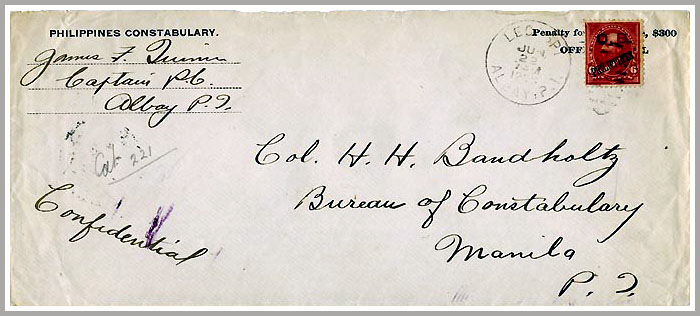 PHILIPPINES CONSTABULARY.
James F. Quinn
Captain P.C.
Albay P. I.
Penalty for , $300
OFFI L
LEGASPI
JUN
ALBAY, P. I.
O.B.
6 6
Cat. 221
Col. H. H. Bandholtz
Bureau of Constabulary
Manila
P. I.
Confidential